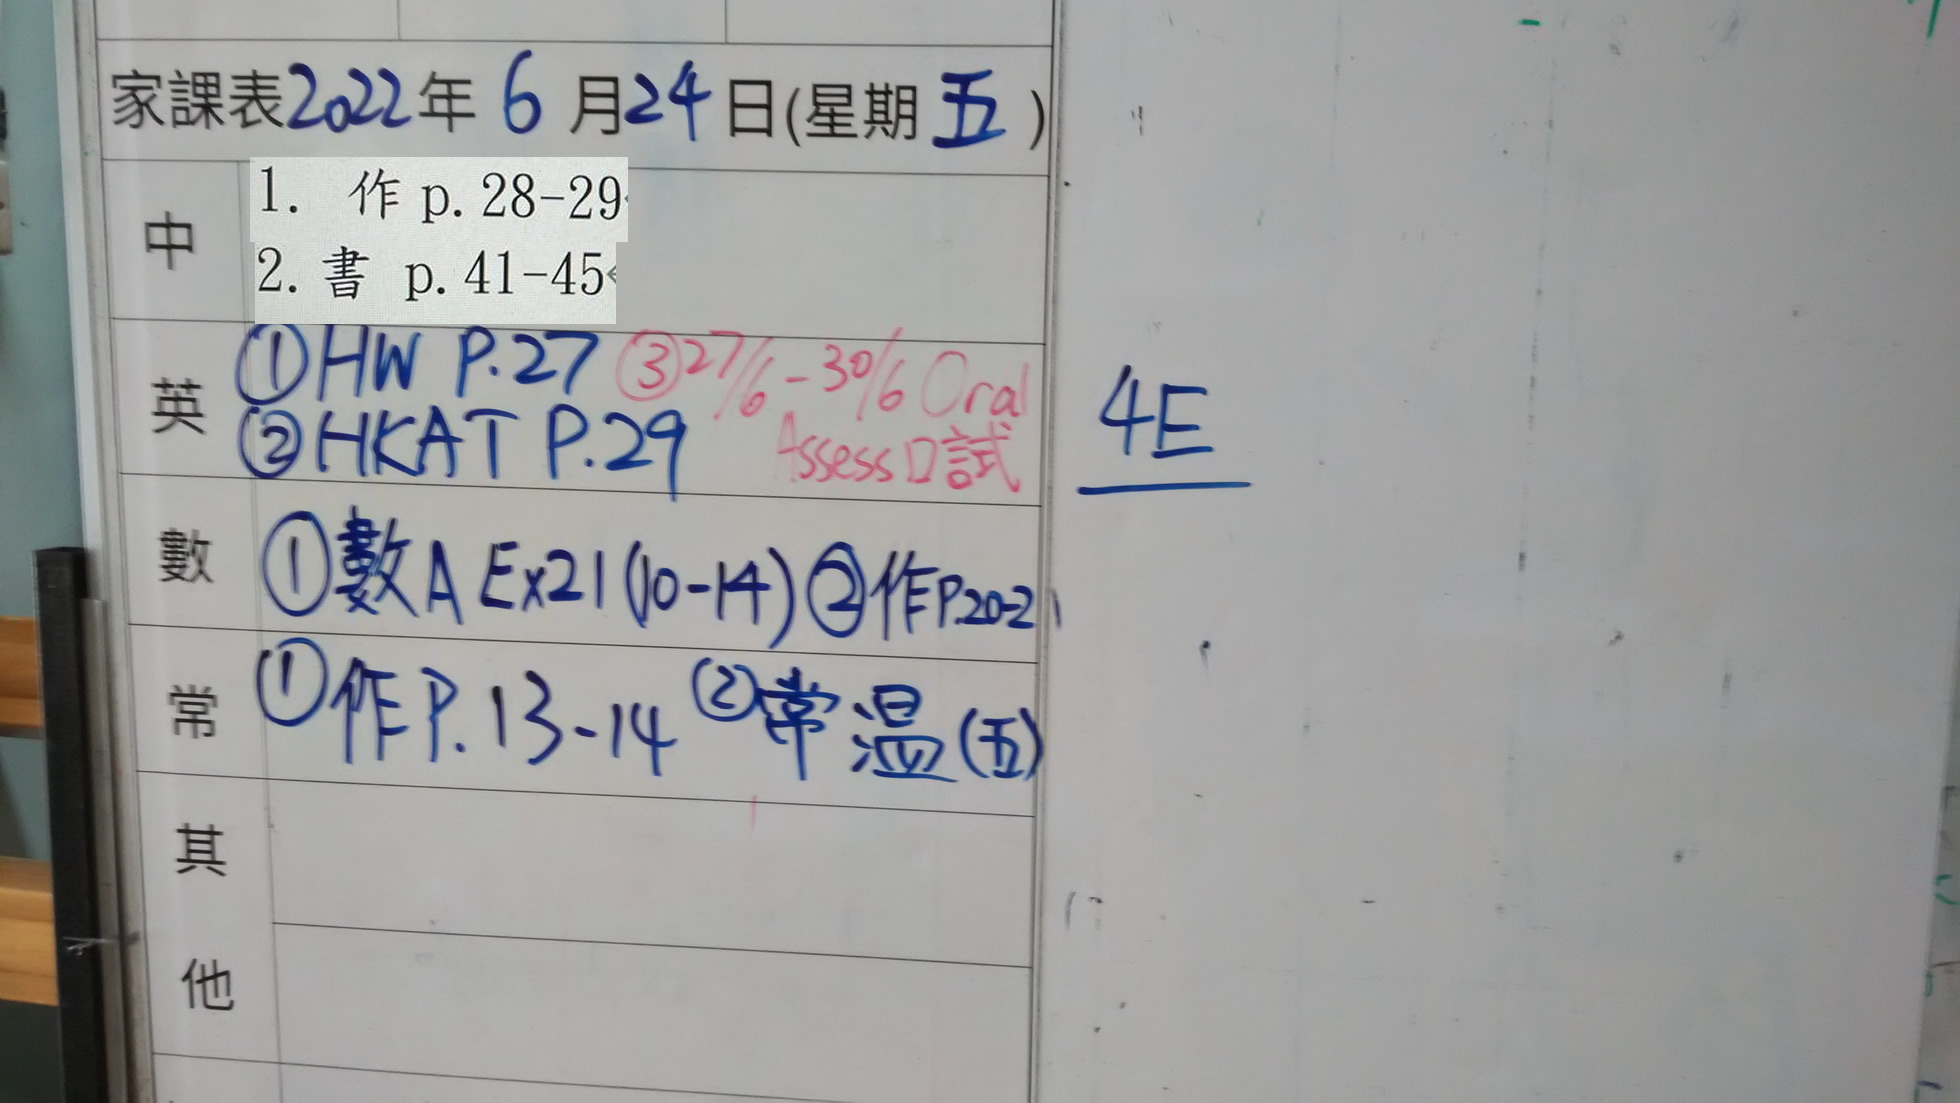 家課表2022年6月24日(星期五)
中
1. 作 p.28-29
2. 書 p.41-45
英
①HW P.27 ③27/6-30/6 Oral
②HKAT P.29 Assess口試
4E
數
①數A Ex21(10-14)②作P.20-21
常
①作P.13-14 ②常溫(五)
其
他